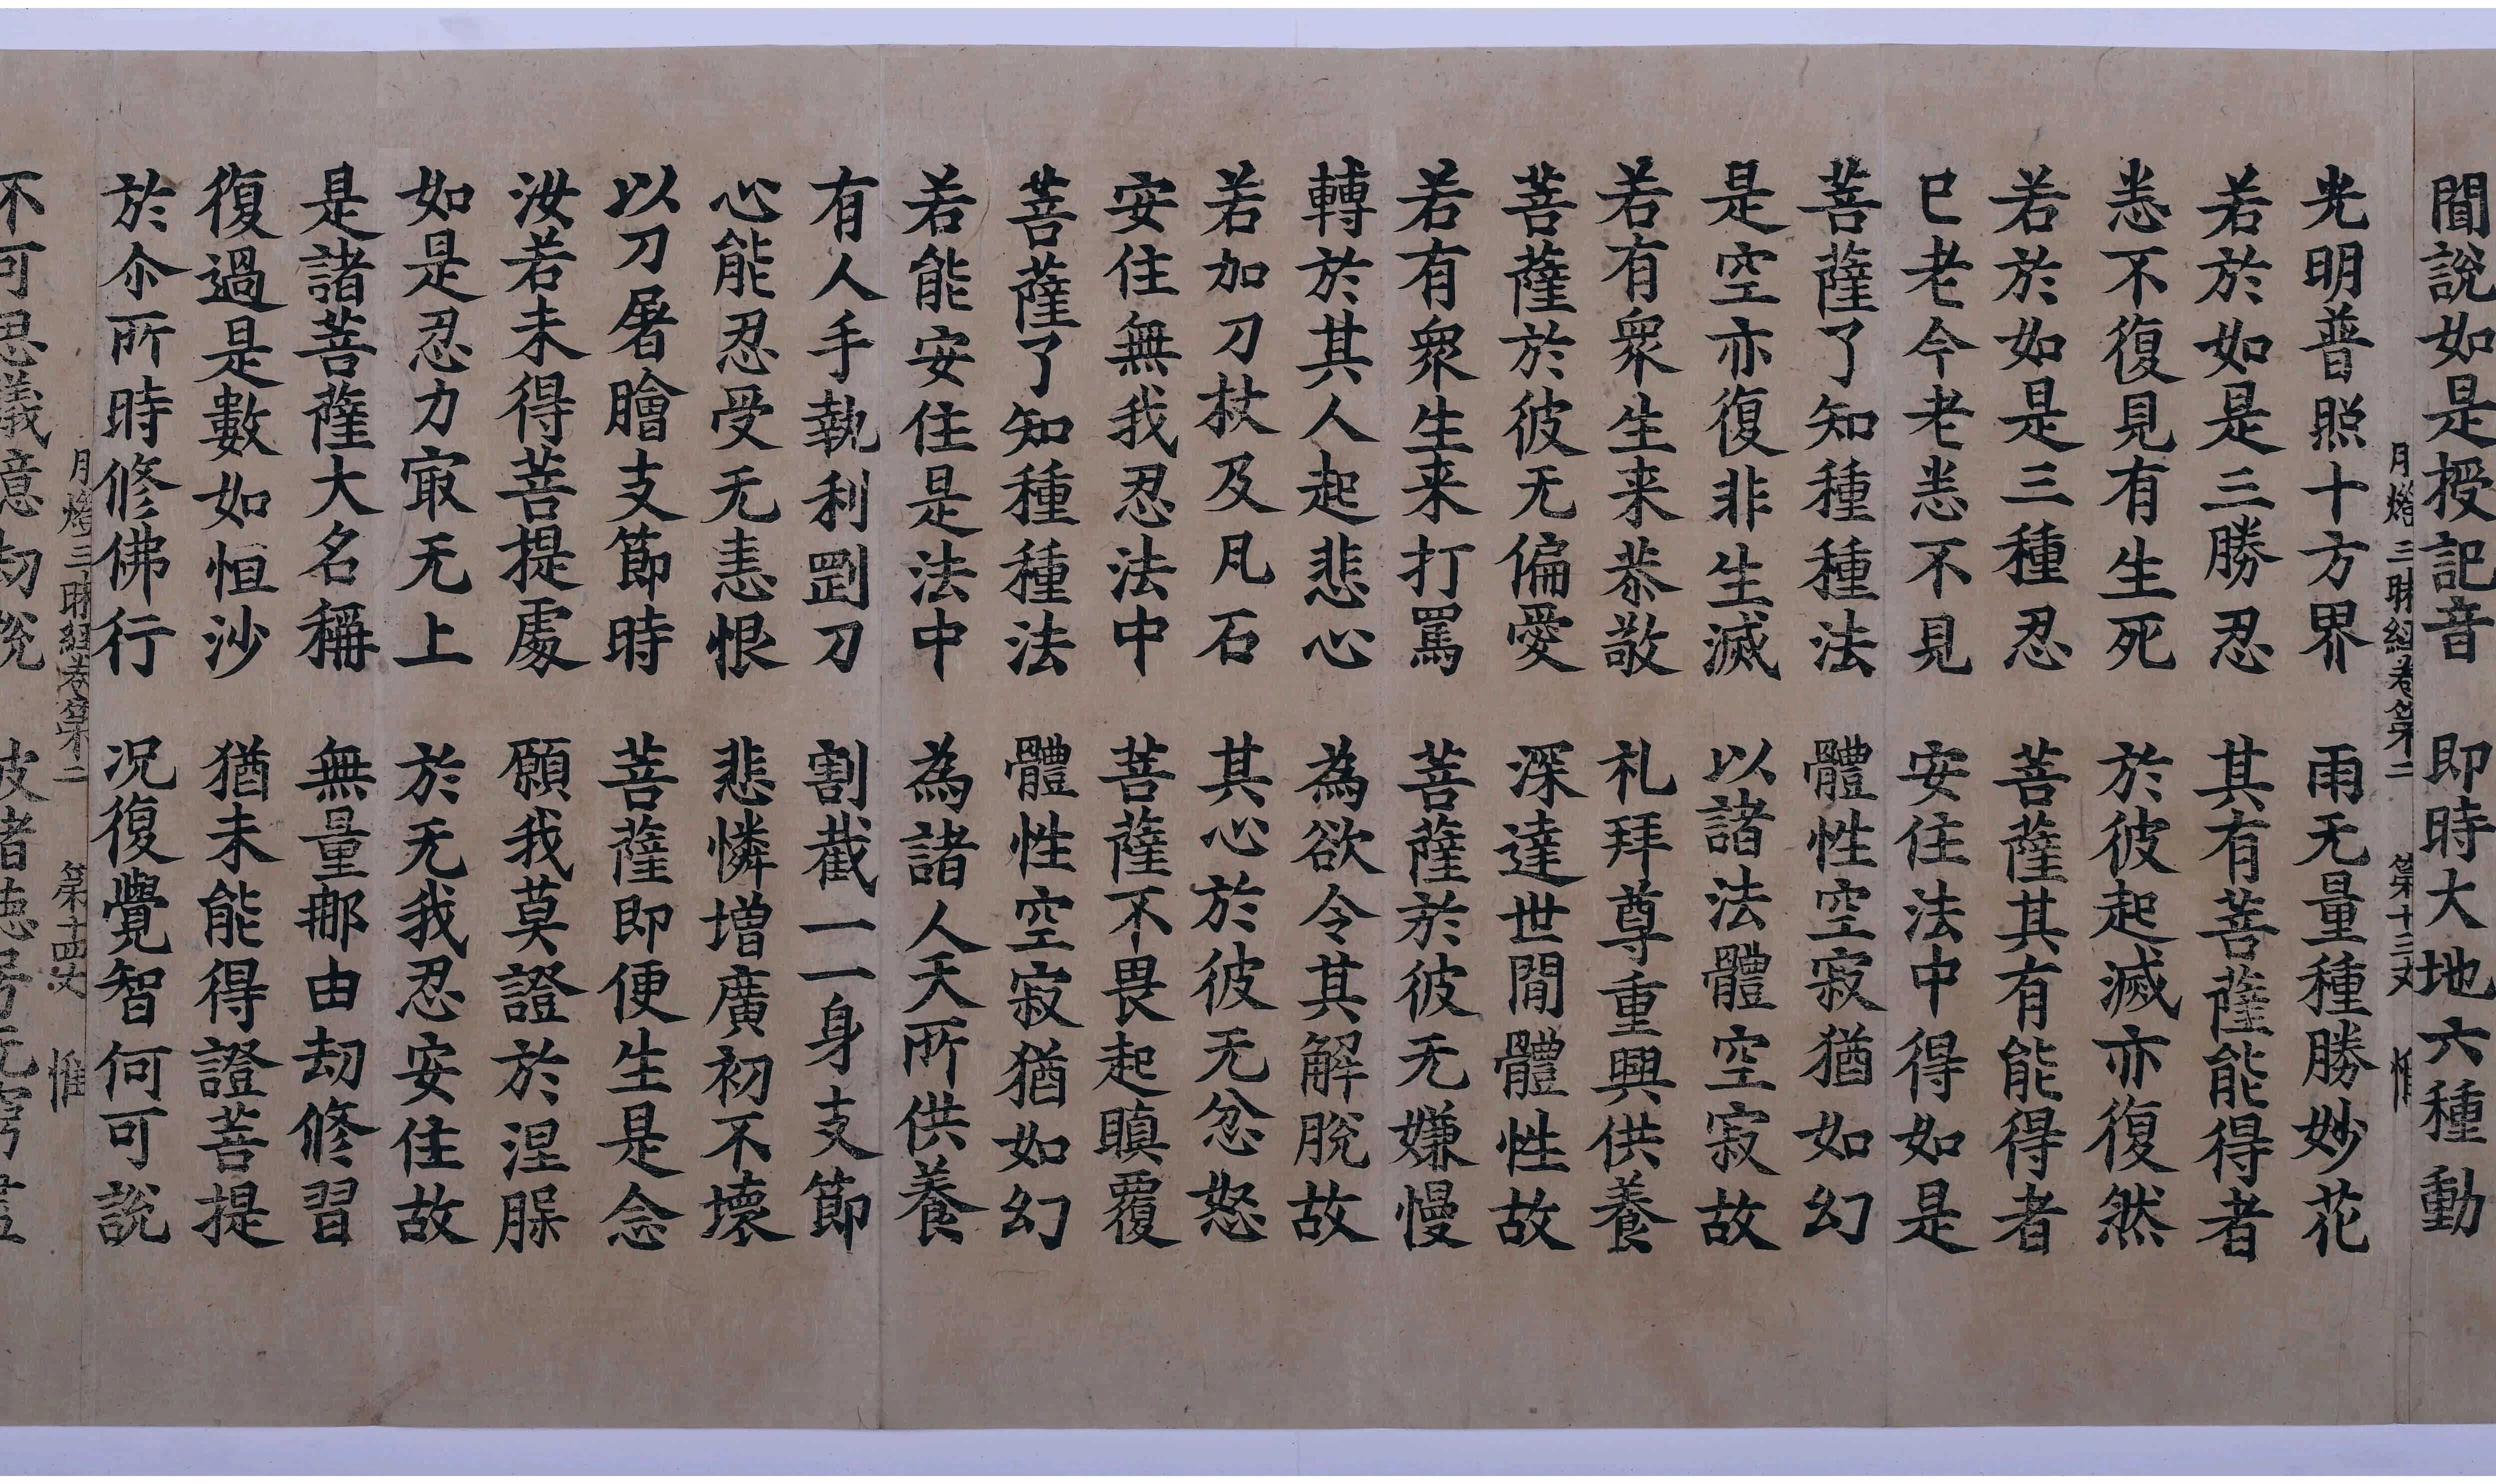 聞說如是授記音　即時大地六種動
月燈三昧經卷第二　第十三丈　惟
光明普照十方界　雨无量種勝妙花
若於如是三勝忍　其有菩薩能得者
恙不復見有生死　於彼起滅亦復然
若於如是三種忍　菩薩其有能得者
已老今老恙不見　安住法中得如是
菩薩了知種種法　體性空寂猶如幻
是空亦復非生滅　以諸法體空寂故
若有衆生来恭敬　礼拜尊重興供養
菩薩於彼无偏愛　深達世間體性故
若有衆生来打罵　菩薩於彼无嫌慢
轉於其人起悲心　為欲令其解脫故
若加刀杖及凡石　其心於彼无忿怒
安住無我忍法中　菩薩不畏起瞋覆
菩薩了知種種法　體性空寂猶如幻
若能安住是法中　為諸人天所供養
有人手執利罡刀　割截一一身支節
心能忍受无恚恨　悲憐增廣初不壞
以刀屠膾支節時　菩薩即便生是念
汝若未得菩提處　願我莫證於涅䏶
如是忍力㝡无上　於无我忍安住故
是諸菩薩大名稱　無量那由劫修習
復過是數如恒沙　猶未能得證菩提
於尒所時修佛行　況復覺智何可說
月燈三昧經卷第二　第十四丈　惟
不可思議億劫說　彼諸德号无窮盡